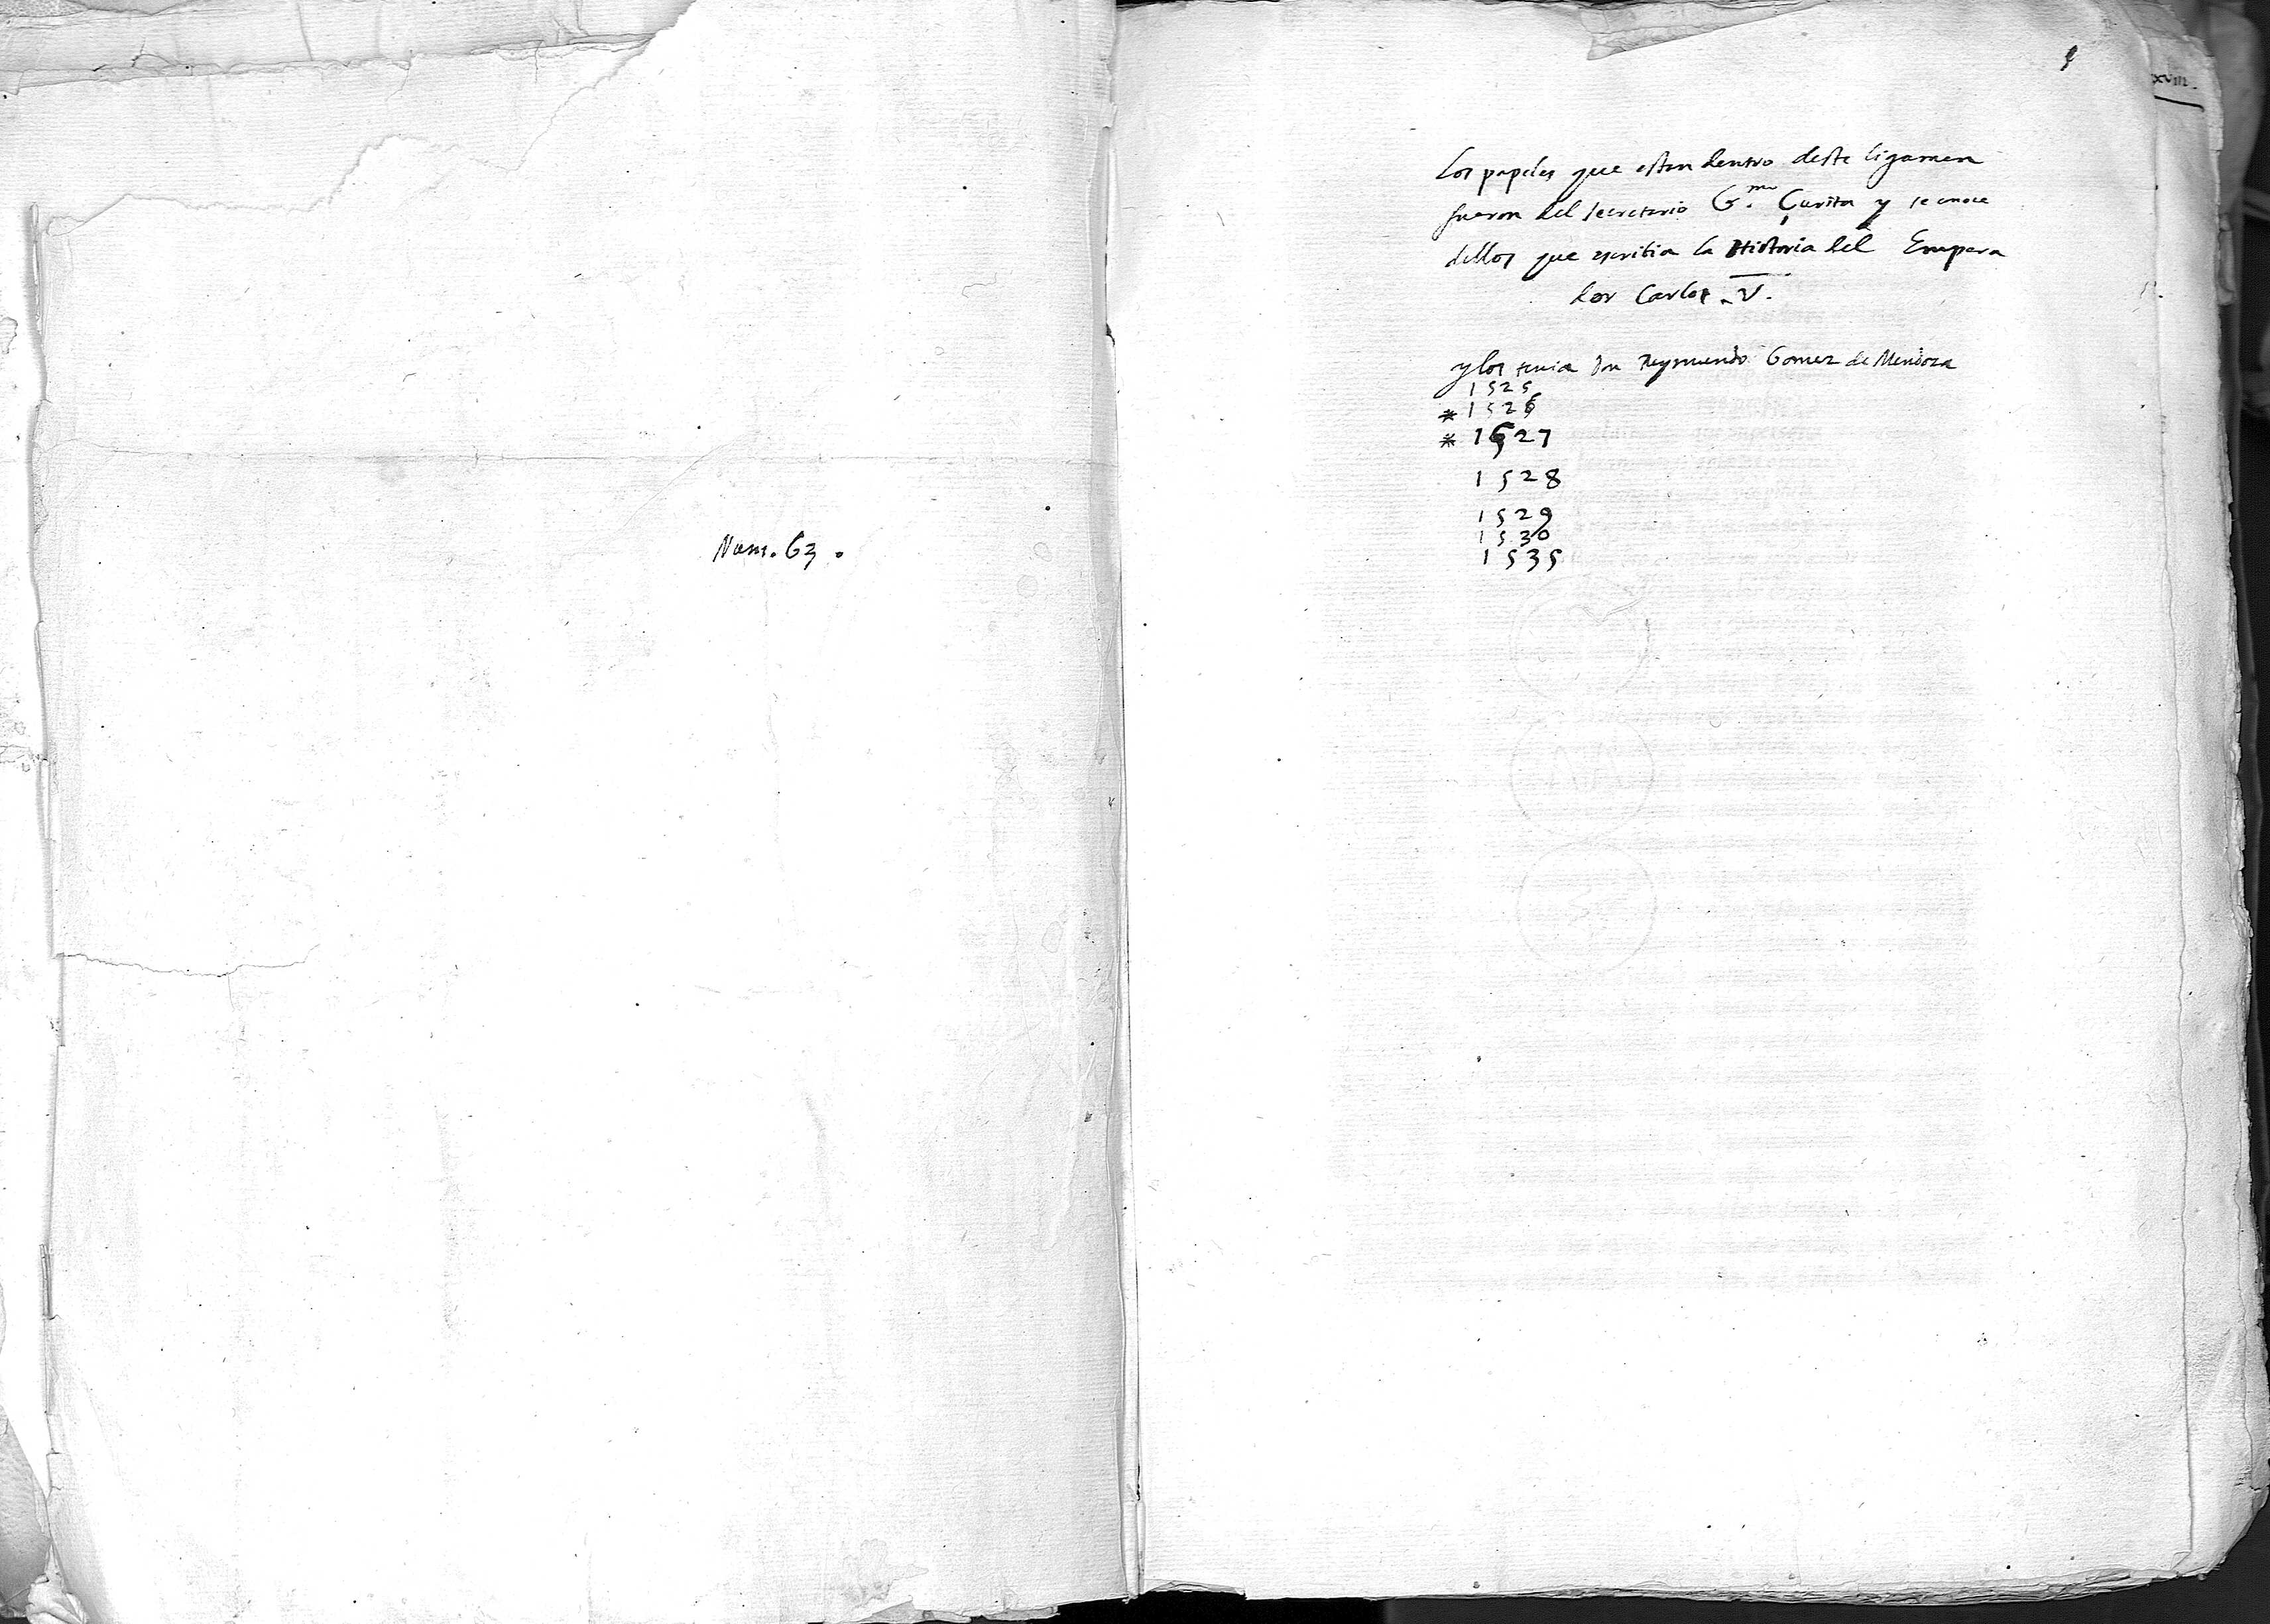 Num. 63.
xviii.
los papeles que estan dentro deste ligamen
fueron del secretario G.mo Çurita y se conoce
dellos que escribia la Historia del Empera
dor Carlos V.
y los tenia don Reymundo Gomez de Mendoza
1525
* 1526
* 1527
1528
1529
1530
1535